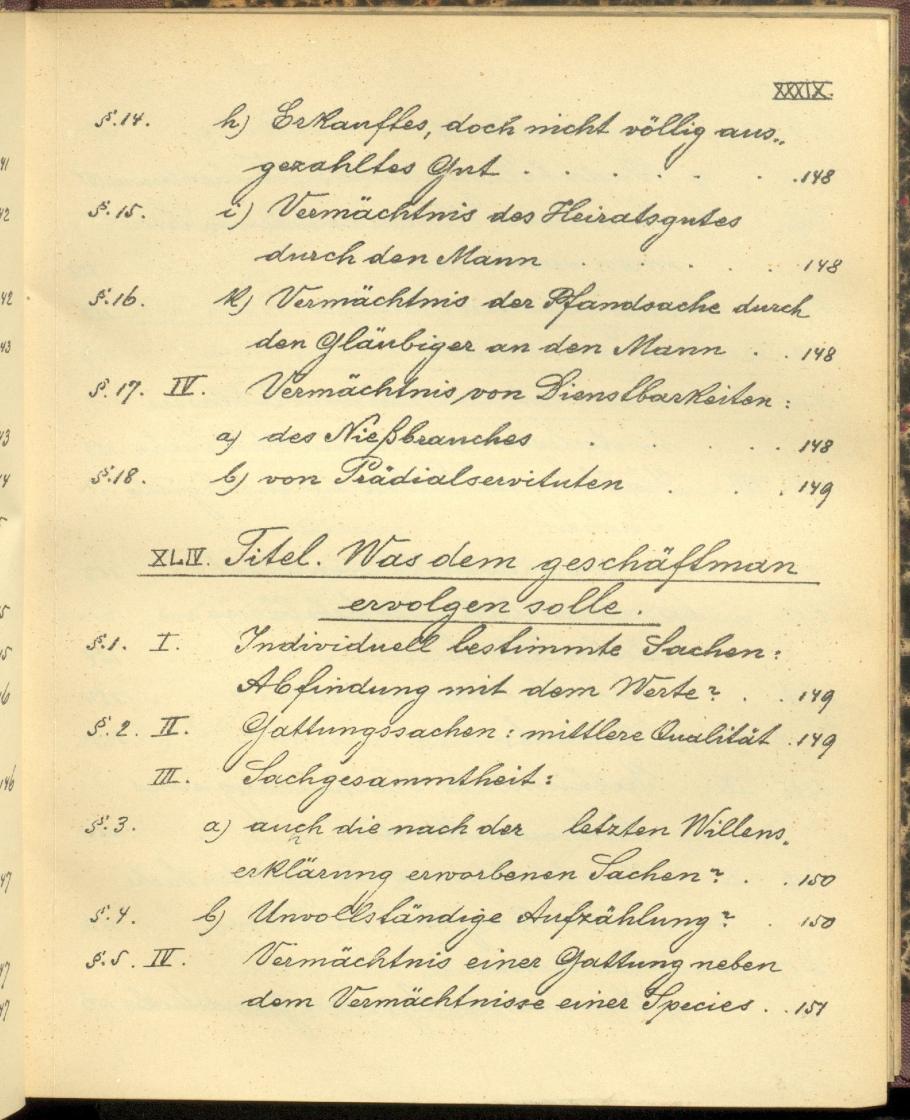 XXXIX.
§.14. h) Erkauftes, doch nicht völlig aus„
gezahltes Gut . . . . . . . 148
§.15. i) Vermächtnis des Heiratsgutes
durch den Mann . . . . . 148
§.16. k) Vermächtnis der Pfandsache durch
den Gläubiger an den Mann . . 148
§.17. IV. Vermächtnis von Dienstbarkeiten:
a) des Nießbrauches . . . . 148
§.18. b) von Prädialservituten . . . 149
XLIV. Titel. Was dem geschäftman
ervolgen solle.
§.1. I. Individuell bestimmte Sachen:
Abfindung mit dem Werte? . . 149
§.2. II. Gattungssachen: mittlere Qualität . 149
III. Sachgesammtheit:
§.3. a) auch die nach der letzten Willens„
erklärung erworbenen Sachen? . . 150
§.4. b) Unvollständige Aufzählung? . 150
§.5. IV. Vermächtnis einer Gattung neben
dem Vermächtnisse einer Species . . 151